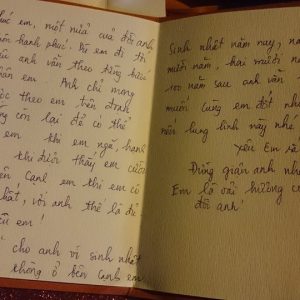 húc em, một nửa của đời anh
hạnh phúc. Dù em đi tới
anh vẫn theo từng bước
chân em. Anh chỉ mong
theo em trên đoạn
còn lại để có thể
em khi em ngã, hạnh
khi được thấy em cười
bên cạnh em khi em có
nhất, với anh thế là đủ
cho anh vì sinh nhật
không ở bên cạnh em
Sinh nhật năm nay, năm
mười năm, hai mươi năm
100 năm sau anh vẫn
muốn cùng em đốt nh
nến lung linh này nhé
Yêu em rấ
Đừng giận anh nhé
Em là
đời anh!